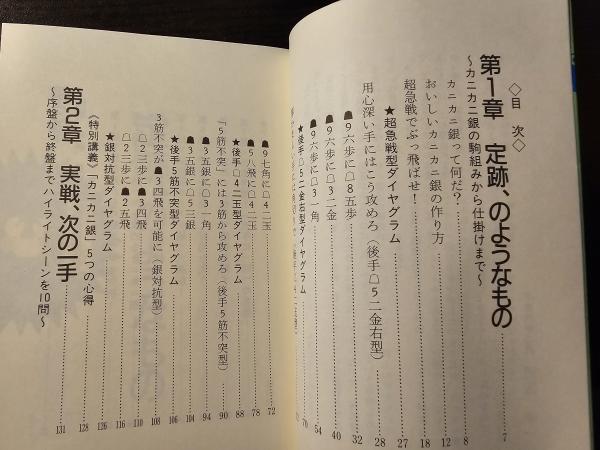 ◇目次◇
第1章 定跡、のようなもの……7
～カニカニ銀の駒組みから仕掛けまで～
カニカニ銀って何だ？……8
おいしいカニカニ銀の作り方……12
超急戦でぶっ飛ばせ！……18
★超急戦型ダイヤグラム……27
用心深い手にはこう攻めろ（後手☖5二金右型）……28
☗9六歩に☖8五歩……32
☗9六歩に☖3二金……40
☗9六歩に☖3一角……54
★後手☖5二金右型ダイヤグラム……70
☗9七角に☖4二玉……72
☗5八飛に☖4二玉……78
★後手☖4二玉型ダイヤグラム……88
「5筋不突」には3筋から攻めろ（後手5筋不突型）……90
☗3五銀に☖3一角……94
☗3五銀に☖5三銀……104
★後手5筋不突型ダイヤグラム……106
3筋不突が☗3四飛を可能に（銀対抗型）……108
☖2三歩に☗3四飛……110
☖2三歩に☗2五飛……116
★銀対抗型ダイヤグラム……126
《特別講義》「カニカニ銀」5つの心得……128
第2章 実戦、次の一手……131
～序盤から終盤までハイライトシーンを10問～